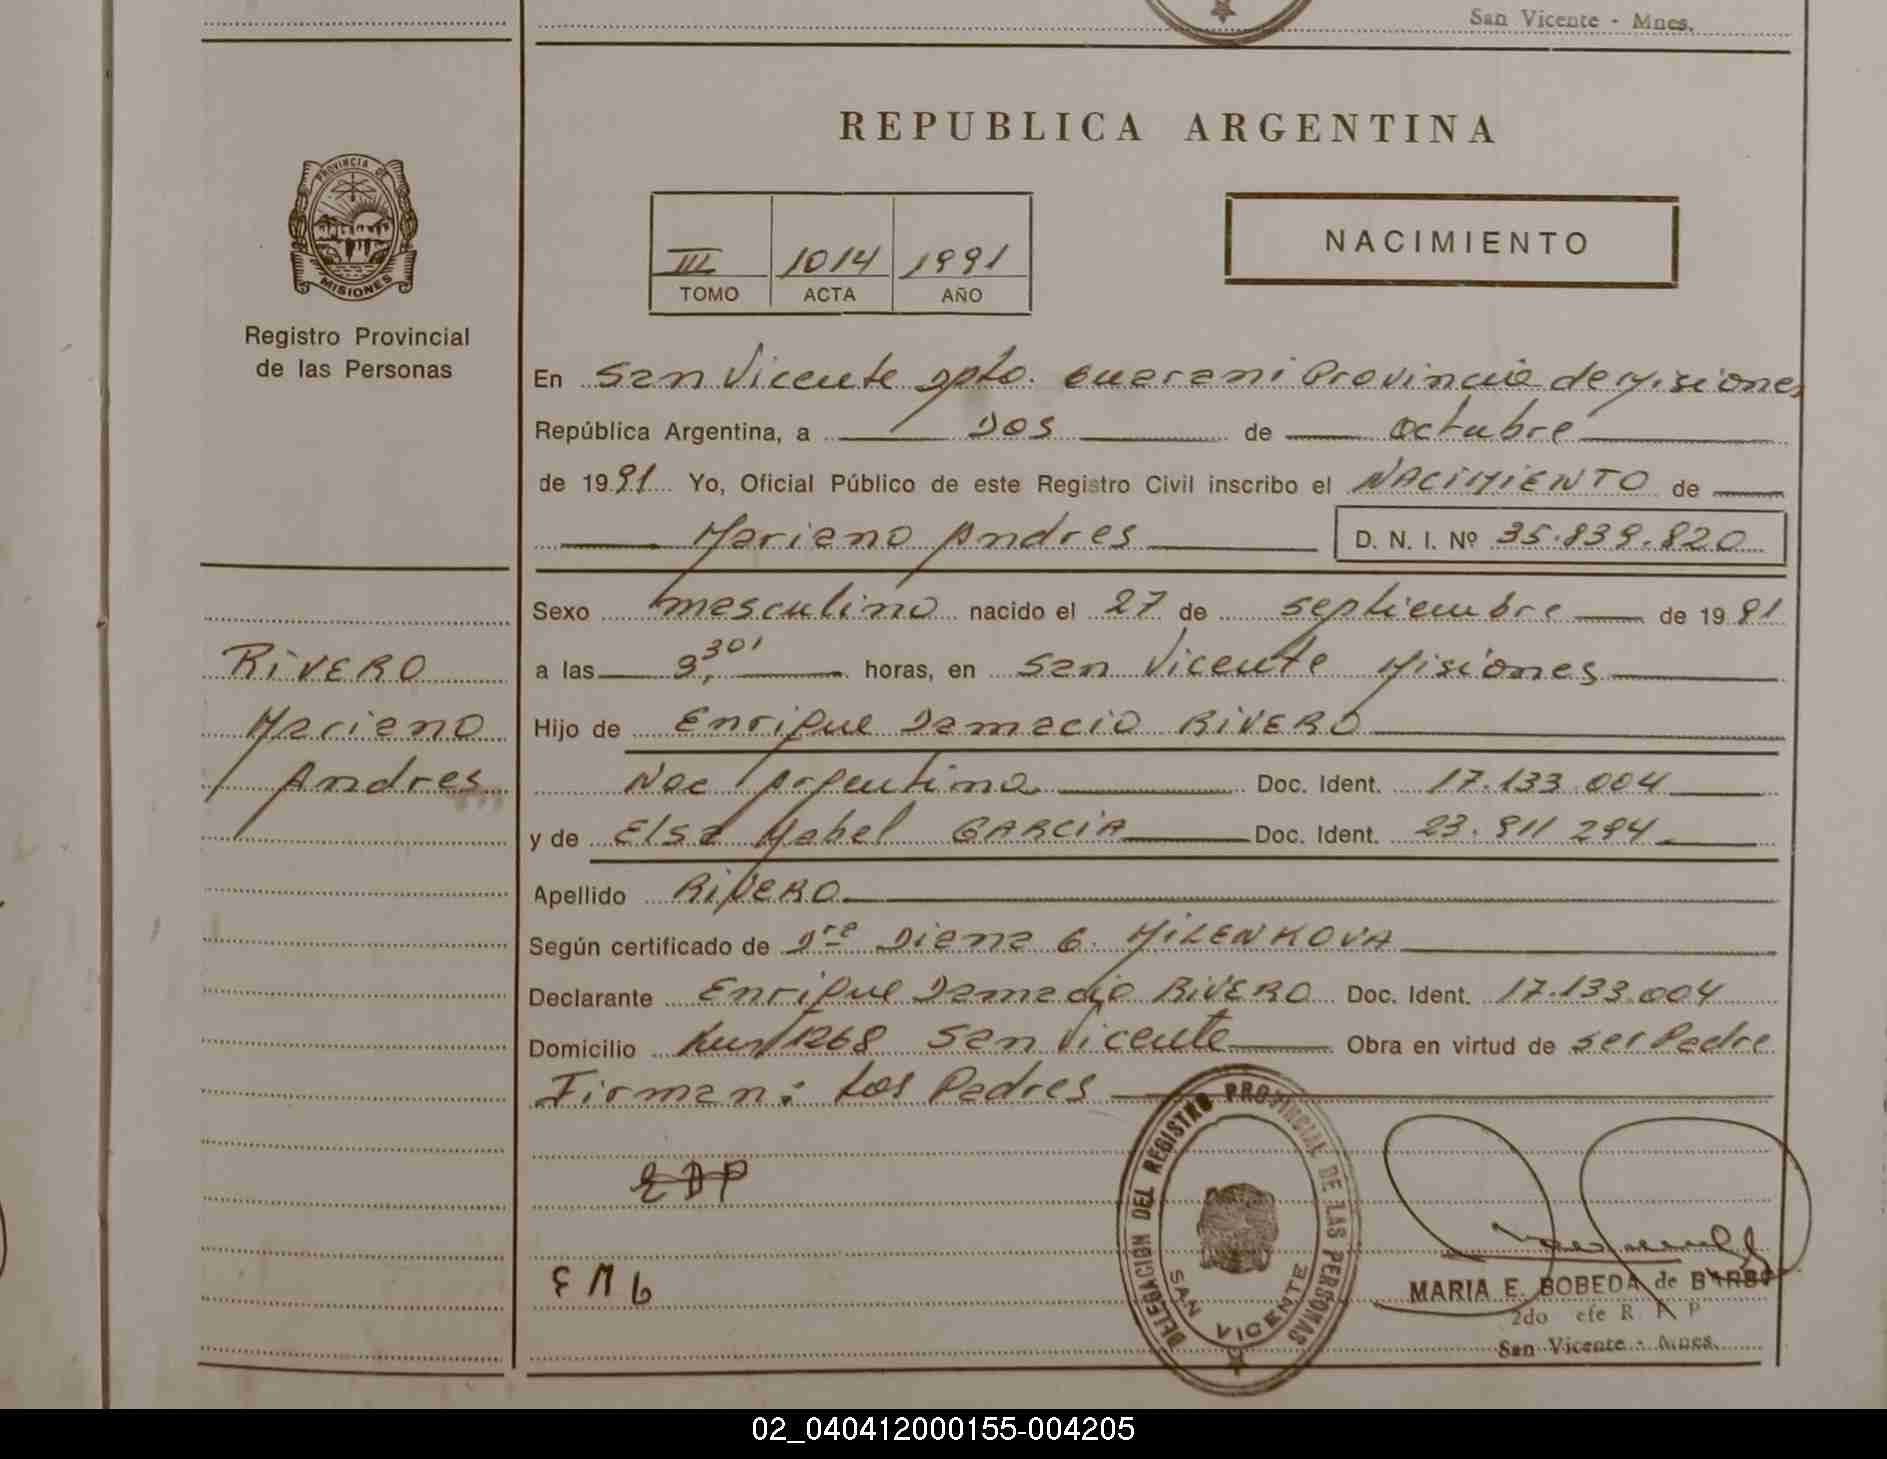 San Vicente - Mnes.
REPUBLICA ARGENTINA
PROVINCIA DE
MISIONES
Registro Provincial
de las Personas
III 1014 1991
TOMO ACTA AÑO
NACIMIENTO
En San Vicente Dpto. Guarani Provincia de Misiones
República Argentina, a Dos de octubre
de 1991 Yo, Oficial Público de este Registro Civil inscribo el NACIMIENTO de
Mariano Andres D. N. I. Nº 35.839.820
Sexo masculino nacido el 27 de septiembre de 1991
a las 9,30' horas, en San Vicente Misiones
Hijo de Enrique Damacio RIVERO
Nac Argentino Doc. Ident. 17.133.004
y de Elsa Mabel GARCIA Doc. Ident. 23.911 294
Apellido RIVERO
Según certificado de Dra Diana G. MILENKOVA
Declarante Enrique Damacio RIVERO Doc. Ident. 17.133.004
Domicilio Km 1268 San Vicente Obra en virtud de ser Padre
Firman: Los Padres
RIVERO
Mariano
Andres
EDP
E M G
DELEGACIÓN DEL REGISTRO PROVINCIAL DE LAS PERSONAS
SAN VICENTE
MARIA E. BOBEDA de
2do
San Vicente - Mnes.
02_040412000155-004205